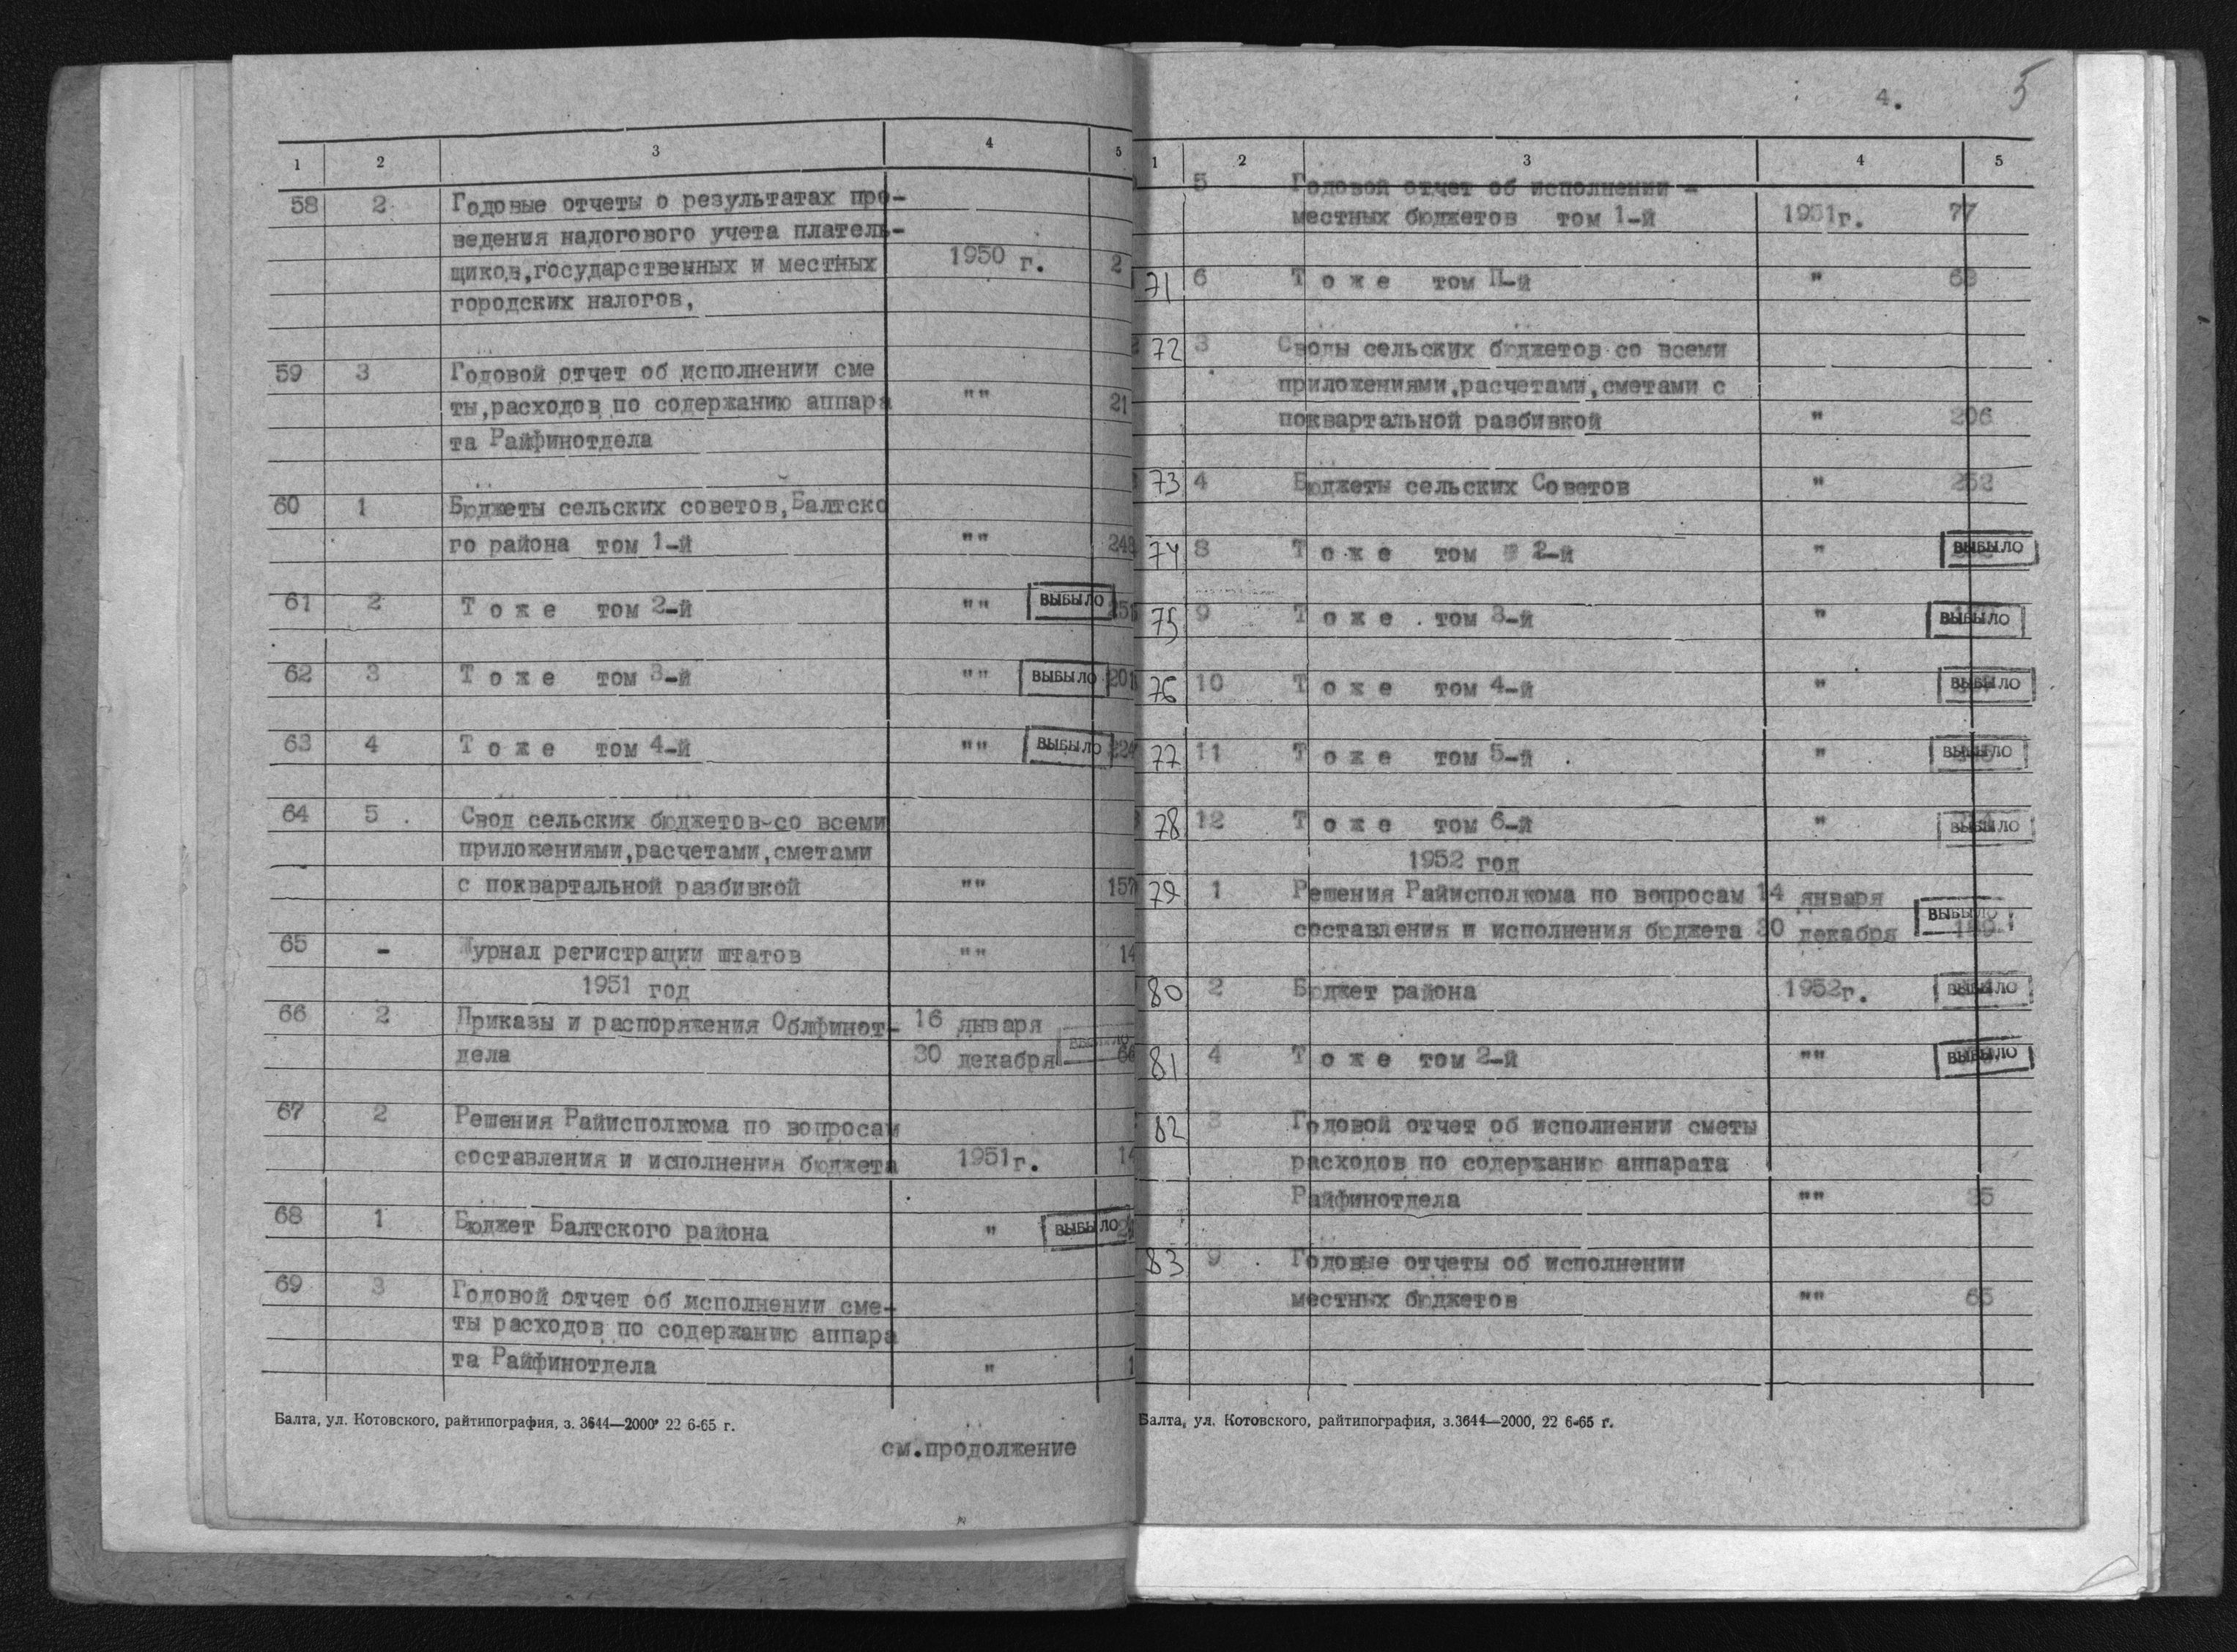 1 2 3 4 5
58 2 Годовые отчеты о результатах про-
ведения налогового учета платель-
щиков,государственных и местных 1950 г. 2
городских налогов,
59 3 Годовой отчет об исполнении сме
ты,расходов по содержанию аппара "" 21
та Райфинотдела
60 1 Бюджеты сельских советов,Балтско
го района том 1-й "" 248
61 2 Т о ж е том 2-й "" ВЫБЫЛО
62 3 Т о ж е том 3-й "" ВЫБЫЛО 201
63 4 Т о ж е том 4-й "" ВЫБЫЛО
64 5 Свод сельских бюджетов-со всеми
приложениями,расчетами,сметами
с поквартальной разбивкой "" 157
65 - Журнал регистрации штатов "" 14
1951 год
66 2 Приказы и распоряжения Облфинот- 16 января
дела 30 декабря ВЫБЫЛО
67 2 Решения Райисполкома по вопросам
составления и исполнения бюджета 1951г. 14
68 1 Бюджет Балтского района " ВЫБЫЛО
69 3 Годовой отчет об исполнении сме-
ты расходов по содержанию аппара
та Райфинотдела " 1
Балта, ул. Котовского, райтипография, з. 3644—2000 22 6-65 г.
см.продолжение
4. 5
1 2 3 4 5
5 Годовой отчет об исполнении -
местных бюджетов том 1-й 1951г. 77
71 6 Т о ж е том П-й " 68
72 3 Своды сельских бюджетов со всеми
приложениями,расчетами,сметами с
поквартальной разбивкой " 206
73 4 Бюджеты сельских Советов " 252
74 8 Т о ж е том 2-й " ВЫБЫЛО
75 9 Т о ж е том 3-й " ВЫБЫЛО
76 10 Т о ж е том 4-й " ВЫБЫЛО
77 11 Т о ж е том 5-й " ВЫБЫЛО
78 12 Т о ж е том 6-й " ВЫБЫЛО
1952 год
79 1 Решения Райисполкома по вопросам 14 января
составления и исполнения бюджета 30 декабря ВЫБЫЛО
80 2 Бюджет района 1952г. ВЫБЫЛО
81 4 Т о ж е том 2-й "" ВЫБЫЛО
82 3 Годовой отчет об исполнении сметы
расходов по содержанию аппарата
Райфинотдела "" 35
83 9 Годовые отчеты об исполнении
местных бюджетов "" 65
Балта, ул. Котовского, райтипография, з.3644—2000, 22 6-65 г.